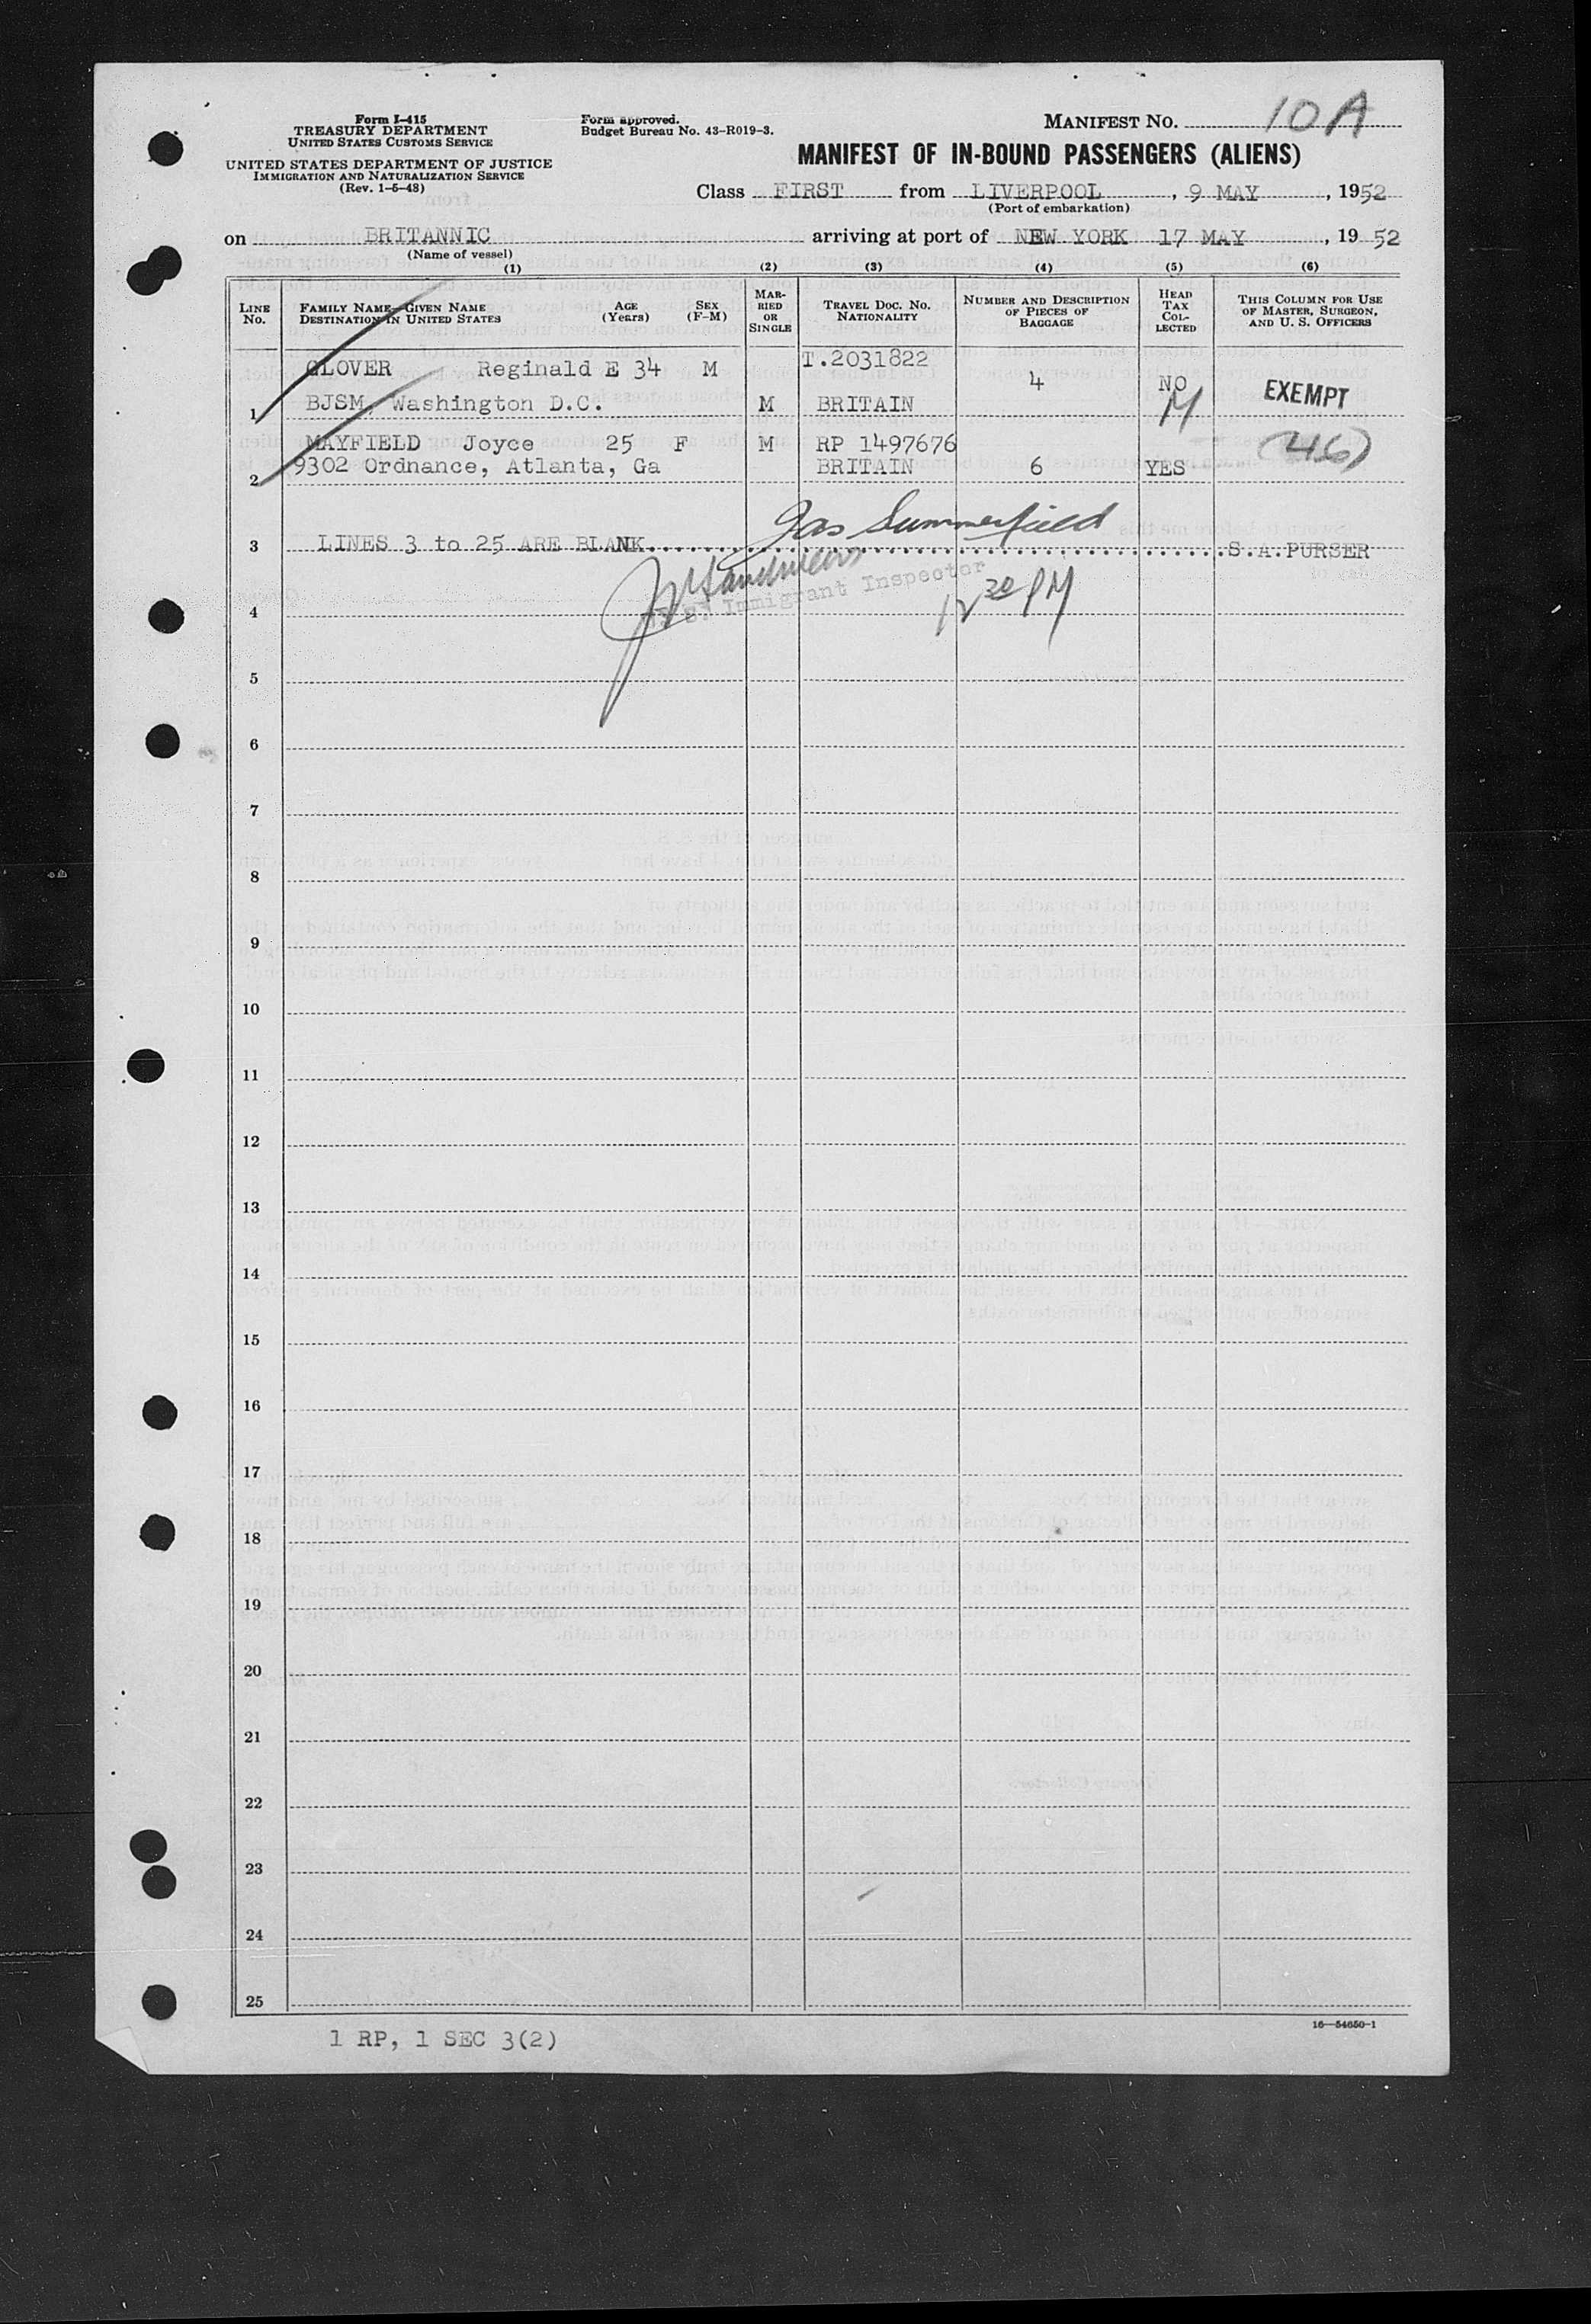 Form I-415
TREASURY DEPARTMENT
UNITED STATES CUSTOMS SERVICE
UNITED STATES DEPARTMENT OF JUSTICE
IMMIGRATION AND NATURALIZATION SERVICE
(Rev. 1-5-48)
Form approved.
Budget Bureau No. 43-R019-3.
MANIFEST NO. 10A
MANIFEST OF IN-BOUND PASSENGERS (ALIENS)
Class FIRST from LIVERPOOL, 9 MAY, 1952
(Port of embarkation)
on BRITANNIC arriving at port of NEW YORK 17 MAY, 19 52
(Name of vessel)
(1) (2) (3) (4) (5) (6)
LINE No.
FAMILY NAME—GIVEN NAME
DESTINATION IN UNITED STATES
AGE (Years)
SEX (F-M)
MARRIED OR SINGLE
TRAVEL DOC. NO.
NATIONALITY
NUMBER AND DESCRIPTION OF PIECES OF BAGGAGE
HEAD TAX COLLECTED
THIS COLUMN FOR USE OF MASTER, SURGEON, AND U. S. OFFICERS
GLOVER Reginald E 34 M T.2031822
1 BJSM, Washington D.C. M BRITAIN 4 NO M EXEMPT
MAYFIELD Joyce 25 F M RP 1497676 (46)
2 9302 Ordnance, Atlanta, Ga BRITAIN 6 YES
Jas Summerfield
3 LINES 3 to 25 ARE BLANK S.A.PURSER
Immigrant Inspector
12 30 PM
4
5
6
7
8
9
10
11
12
13
14
15
16
17
18
19
20
21
22
23
24
25
16—54650-1
1 RP, 1 SEC 3(2)